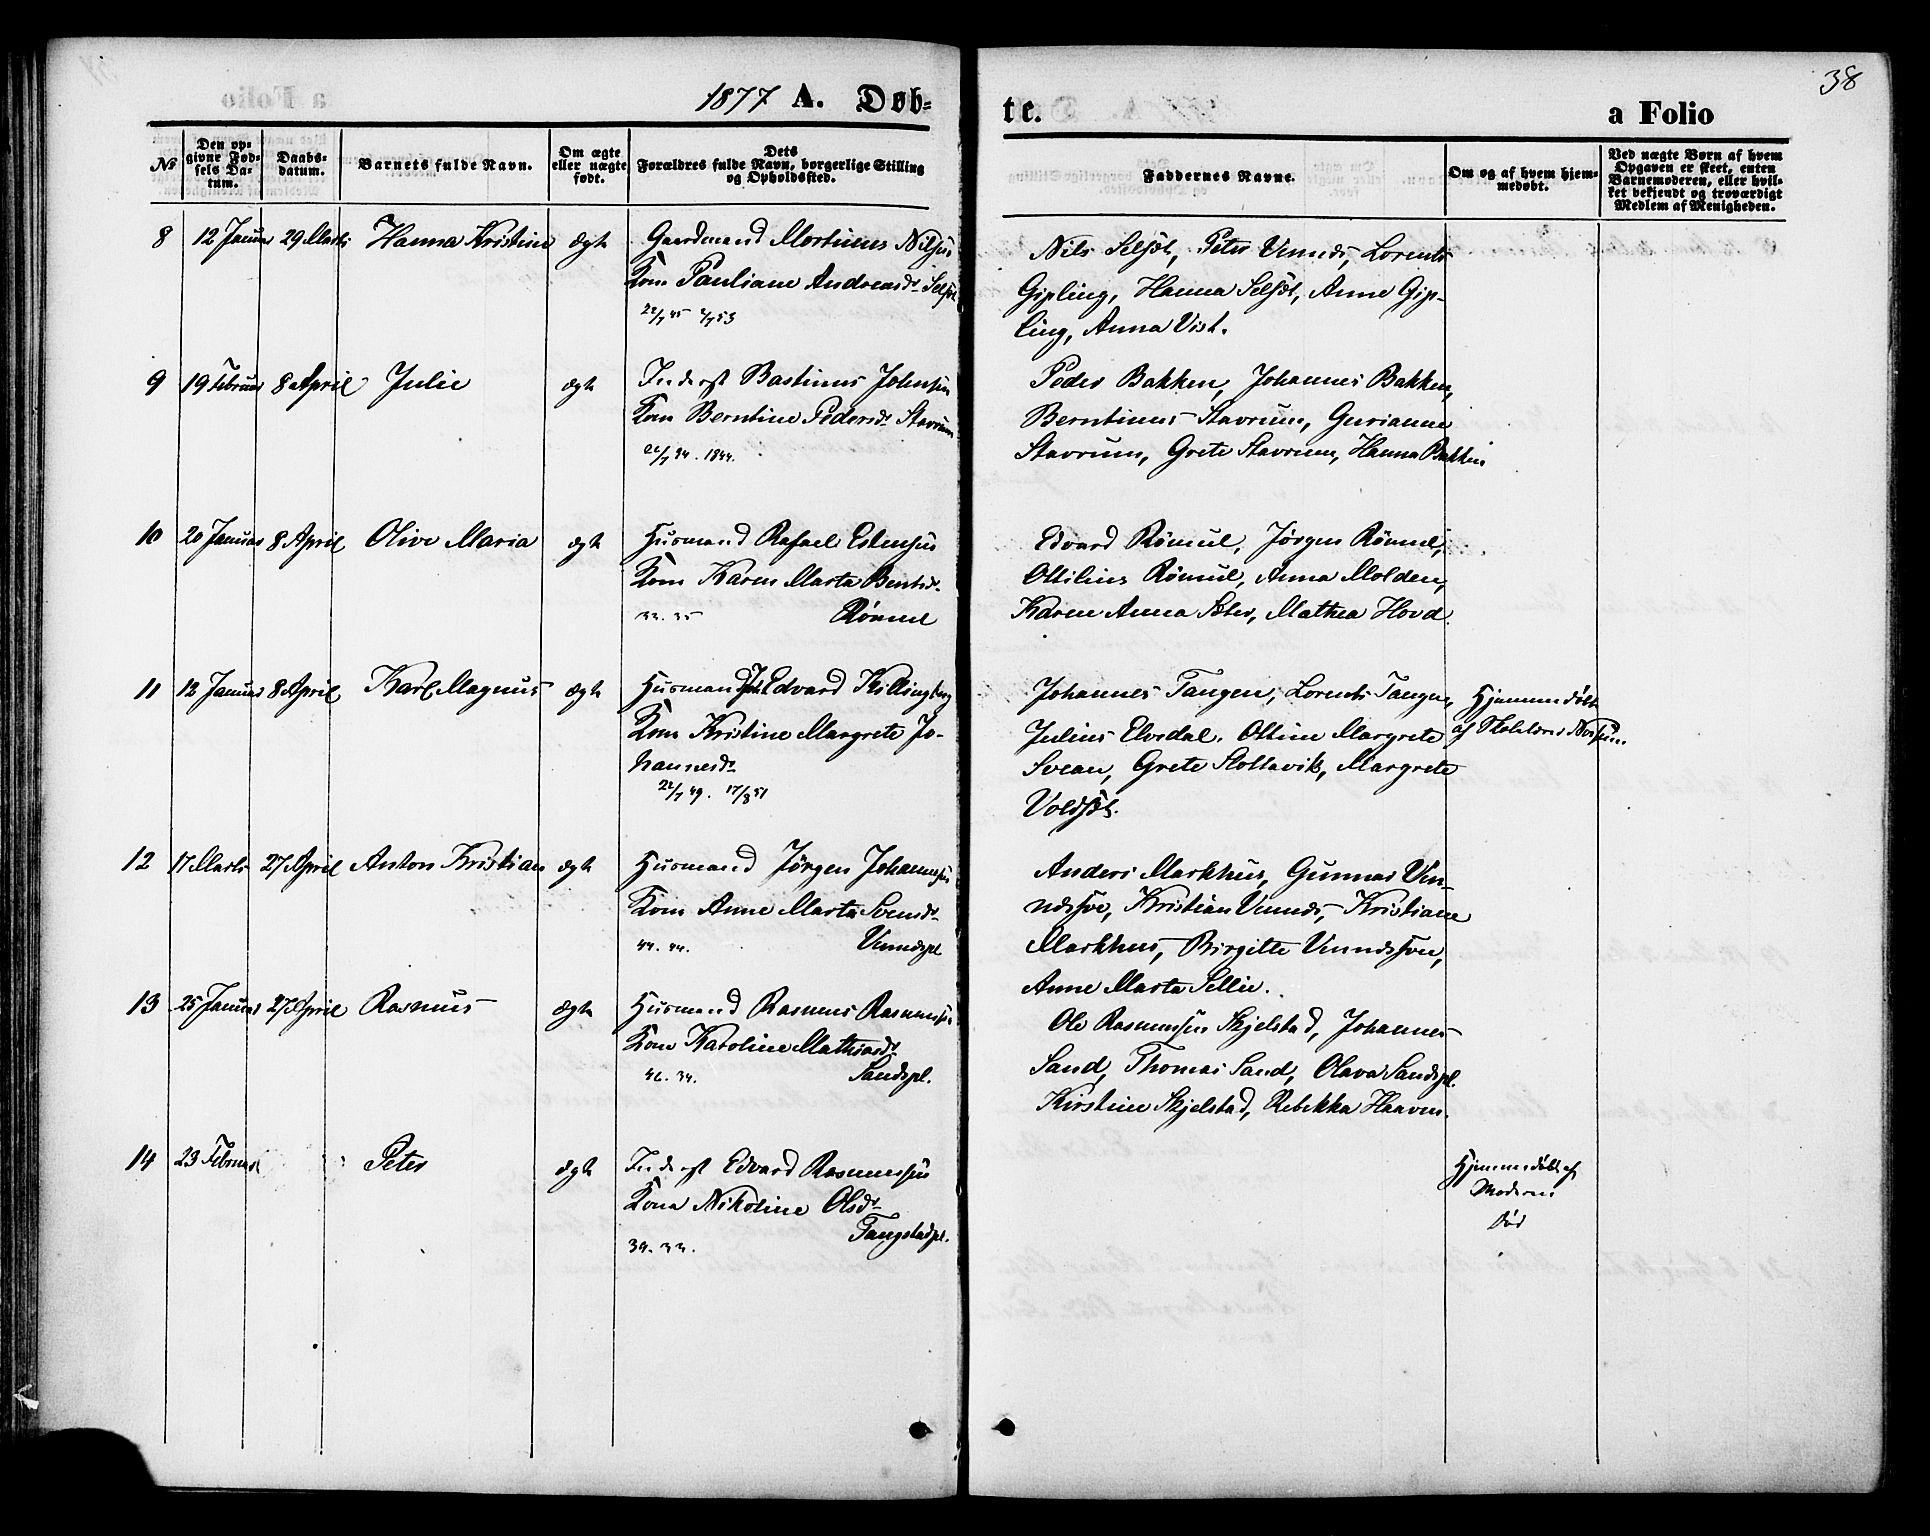 38
1877 A. Døb-
te.
a Folio
№
Den op-
givne Fød-
sels Da-
tum.
Daabs-
datum.
Barnets fulde Navn.
Om ægte
eller uægte
født.
Dets
Forældres fulde Navn, borgerlige Stilling
og Opholdssted.
Faddernes Navne.
Om og af hvem hjem-
medøbt.
Ved uægte Børn af hvem
Opgaven er skeet, enten
Barnemoderen, eller hvil-
ket bekjendt og troværdigt
Medlem af Menigheden.
8 12 Januar 29 Marts Hanna Kristine ægte Gaardmand Martinus Nilsen
Kone Pauliane Andreasdr Selsøt
22/7 45 2/7 53
Nils Selsøt, Peter Vennes, Lorents
Gipling, Hanna Selsøt, Anne Gip-
ling, Anna Vist.
9 19 Februar 8 April Julie ægte Inderst Bastinus Johnsen
Kone Berntine Pedersdr Stavrum
22/7 34. 1844.
Peder Bakken, Johannes Bakken,
Berntinus Stavrum, Gurianne
Stavrum, Grete Stavrum, Hanna Bakken
10 20 Januar 8 April Olive Maria ægte Husmand Rafael Estensen
Kone Karen Marta Berntsdr
33. 35 Rømul
Edvard Rømul, Jørgen Rømul,
Ottilius Rømul, Anna Molden,
Karen Anna Sæter, Mathea Hovd.
11 12 Januar 8 April Karl Magnus ægte Husmand Joh. Edvard Killingberg
Kone Kristine Margrete Jo-
hannesdr
22/7 49. 17/8 51
Johannes Tangen, Lorents Tangen,
Julius Elvedal, Ottine Margrete
Svean, Grete Slottavik, Margrete
Voldsæt.
Hjemmedøbt
af Skolelærer
12 17 Marts 27 April Anton Kristian ægte Husmand Jørgen Johannesen
Kone Anne Marta Svendsdr
44. 44. Vennespl
Anders Markhus, Gunnar Ven-
nessve, Kristian Vennes, Kristiane
Markhus, Birgitte Vennessven,
Anne Marta Sellie.
13 25 Januar 27 April Rasmus ægte Husmand Rasmus Rasmussen
Kone Karoline Mathiasdr
46. 34. Sandspl.
Ole Rasmussen Skjelstad, Johannes
Sand, Thomas Sand, Olava Sandspl.
Kirstine Skjelstad, Rebekka Haaven.
14 23 Februar Peter ægte Inderst Edvard Rasmussen
Kone Nikoline Olsdr
34. 33. Tangstadpl.
Hjemmedøbt af
Moderen
død